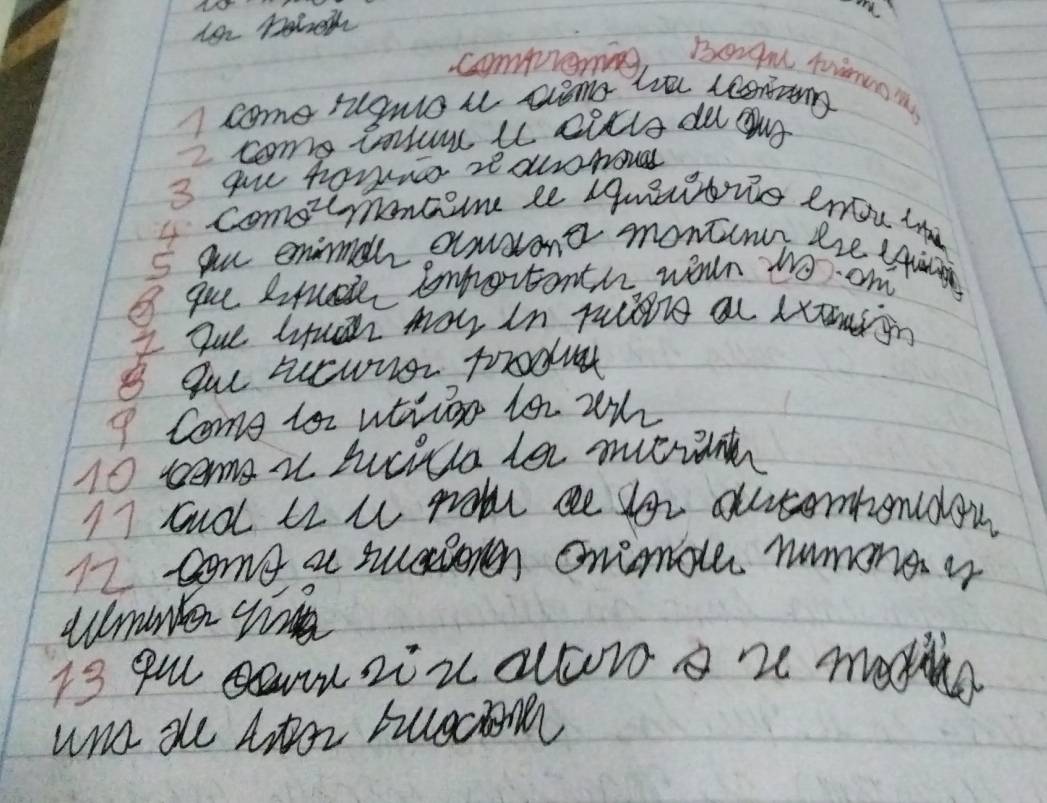 los
compromiso Bosque primario
1 como regula el clima este ecosistema
2 como influye el ciclo del agua
3 que pasaria si desaparece
4 como se mantiene el equilibrio entre
5 que animales ayudan a mantener ese equilibrio
6 que especies importantes viven
7 que especies hay en peligro de extinción
8 que recursos produce
9 como los utiliza los seres
10 como se recicla los nutrientes
11 cual es el papel de los descomponedores
12 como se relacionan animales humanos y
elementos
13 que ocurre si se altera o se modifica
una de estas relaciones